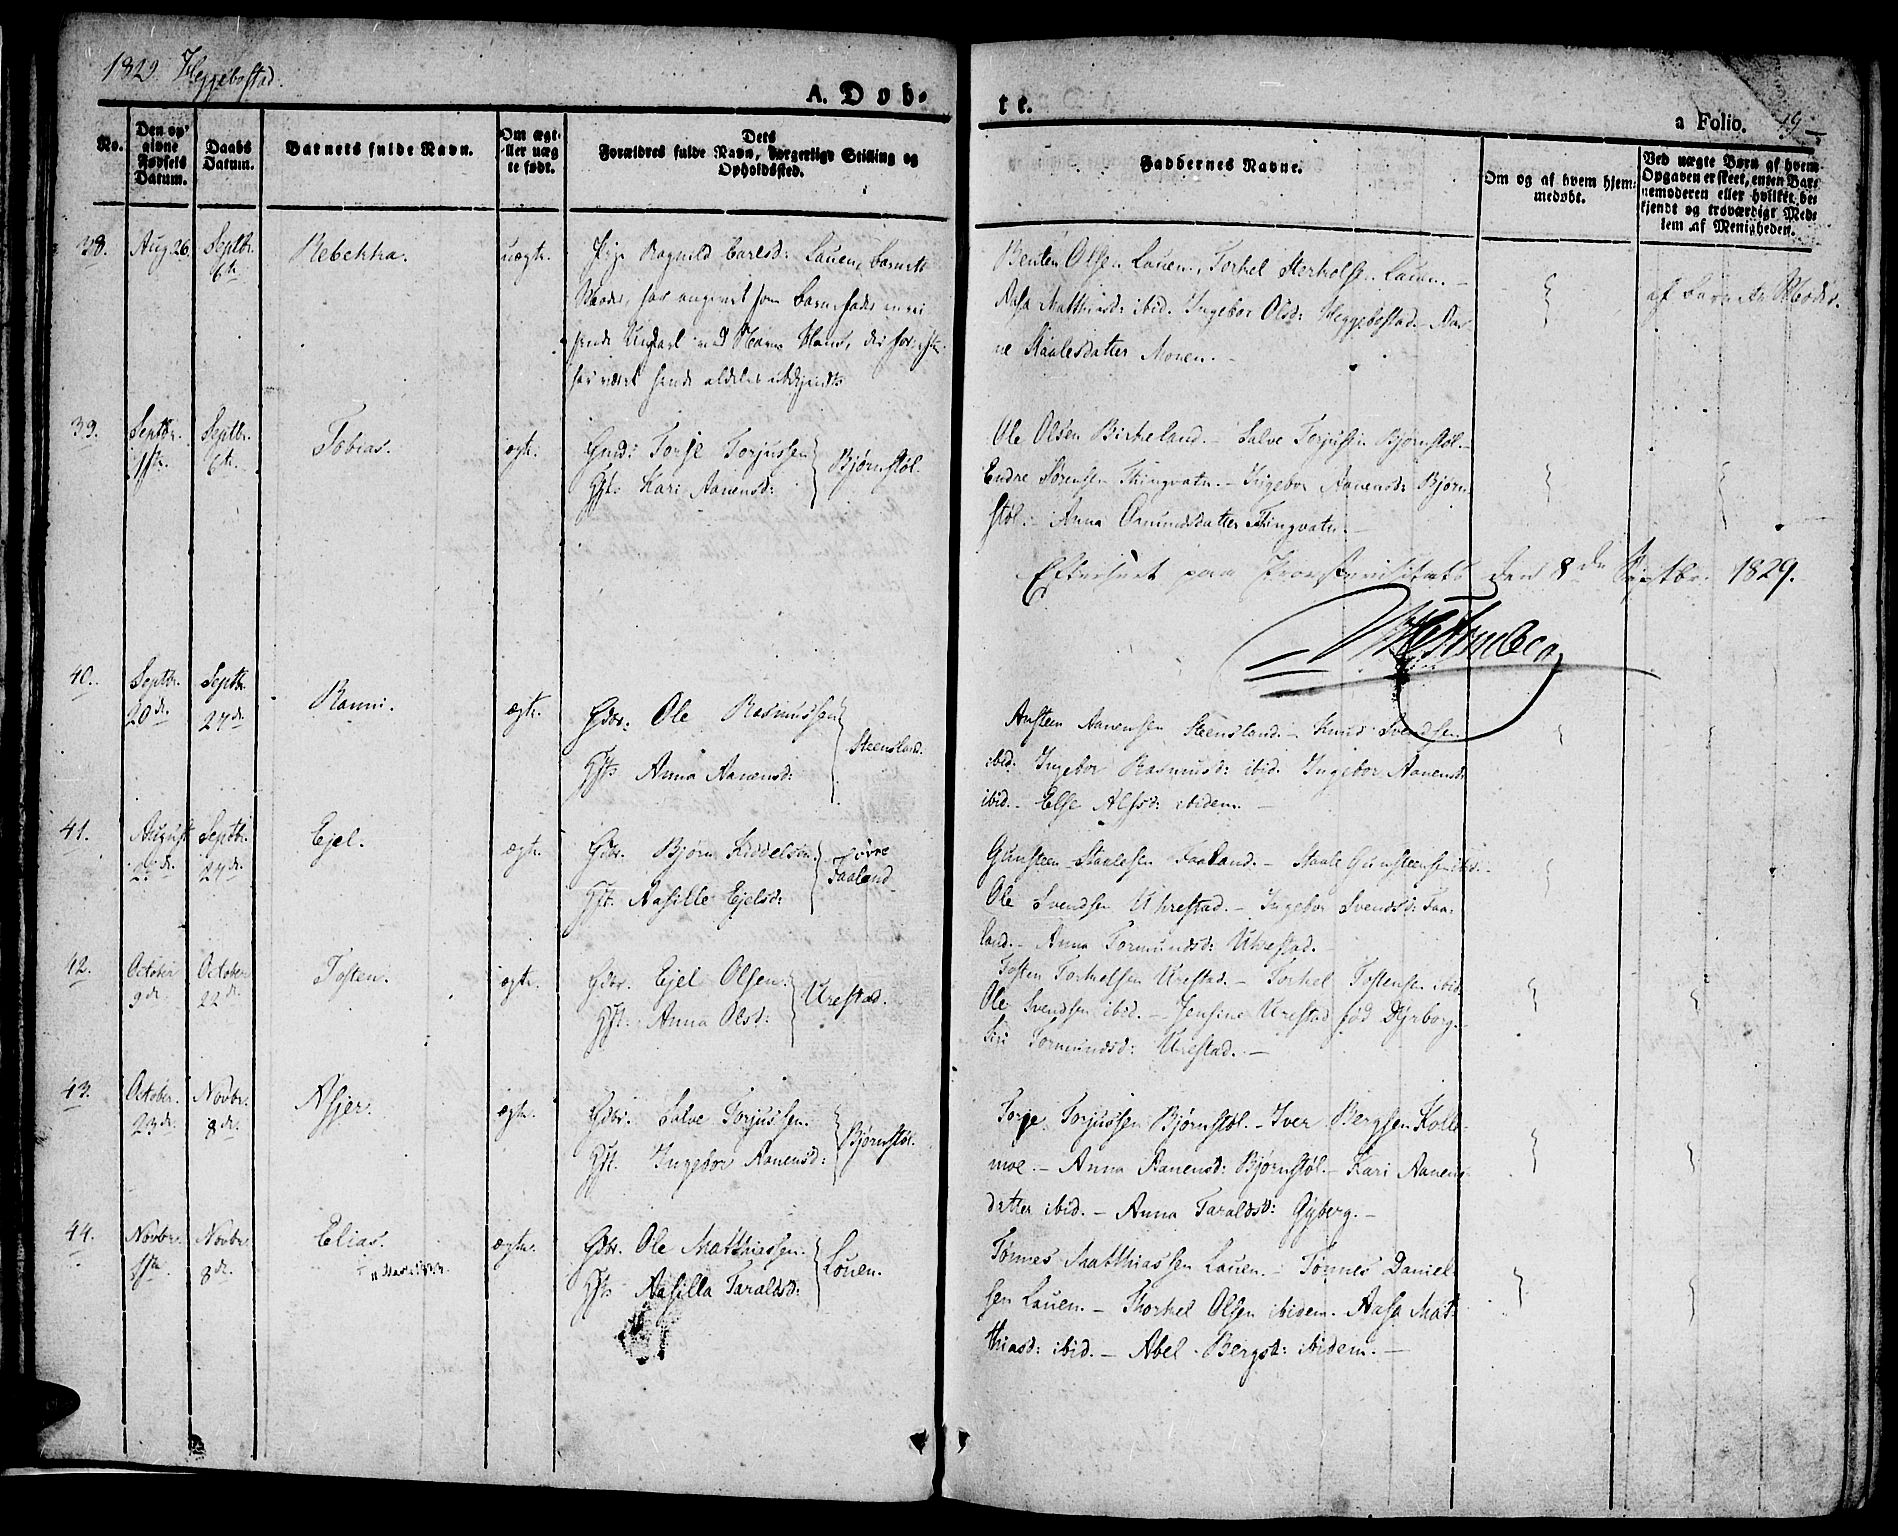 1829. Heggebostad.
A. Døb-
te.
a Folio. 49
No.
Den op-
givne
Fødsels
Datum.
Daabs
Datum.
Barnets fulde Navn.
Om ægt-
eller uæg
te født.
Dets
Forældres fulde Navn, borgerlige Stilling og
Opholdssted.
Faddernes Navne.
Om og af hvem hjem-
medøbt.
Ved uægte Børn af hvem
Opgaven er skeet, enten Bar-
nemoderen eller hvilket be-
kjendt og troværdigt Med-
lem af Menigheden.
38. Aug. 26. Septbr. 6te Rebekka. uægte. Pige Ragnild Carlsd: Lauen, Barnets
Moder, har angivet som Barnefader en
Ungkarl ved Navn Hans, der
har været hende aldeles ubekjendt
Benten Olse. Lauen, Torkel Lauen. -
Aasa Matthiasd: ibid. Ingebor Olsd: Heggebostad.
ne Staalesdatter Monen. -
af Barnets Moder.
39. Septbr. 1ste. Septbr. 6te. Tobias. ægte. Gmd: Torje Torjussen
Hst. Kari Aanensd: Bjørnstøl.
Ole Olsen Birkeland. - Salve Torjussen Bjørnstøl. -
Endre Sørensen Tingvatn. - Ingebor Aanensd: Bjørn-
støl. - Anna Omundsdatter Tingvatn. -
Efterseet paa Provstevisitats den 8de Septbr. 1829.
40. Septbr. 20de. Septbr. 27de. Ranni. ægte. Gdbr. Ole Rasmussen
Hst. Anna Aanensd: Steensland.
Austeen Aanensen Steensland. - Knud Svendsen
ibid: Ingebor Rasmusd: ibid. Ingebor Aanensd:
ibid. - Else Alfsd: ibidem. -
41. August 23de. Septbr. 27de. Ejel. ægte. Gdbr. Bjørn Kiddelsen
Hst. Aasille Ejelsd: øvre Faaland.
Gunsteen Staalesen Faaland. - Staale Gunsteensen ibid. -
Ole Svendsen Urestad. - Ingebor Svendsd: Faa-
land. - Anna Tormundsd: Urestad. -
42. October 9de. October 22de. Tosten. ægte. Gdbr. Ejel Olsen
Hst. Anna Olsd: Urestad.
Tosten Torkelsen Urestad. - Torkel Tostensen ibid.
Ole Svendsen ibid. - Jensine Urestad fød Dyrborg. -
Siri Tormundsd: Urestad. -
43. October. 23de. Novbr. 8de. Asjer. ægte. Gdbr. Salve Torjussen.
Hst. Ingebor Aanensd: Bjørnstøl.
Torje Torjussen Bjørnstøl. - Iver Bergsen Kolle-
moe. - Anna Aanensd: Bjørnstøl. - Kari Aanens-
datter ibid. - Anna Taraldsd: Gyberg. -
44. Novbr. 1ste. Novbr. 8de. Elias. ægte. Gdbr. Ole Matthiassen.
Hst. Aasilla Taraldsd: Lauen.
Tønnes Matthiassen Lauen. - Tønnes Daniel-
sen Lauen. - Thorkel Olsen ibidem. Aasa Mat-
thiasd: ibid. - Abel Bergsd: ibidem. -